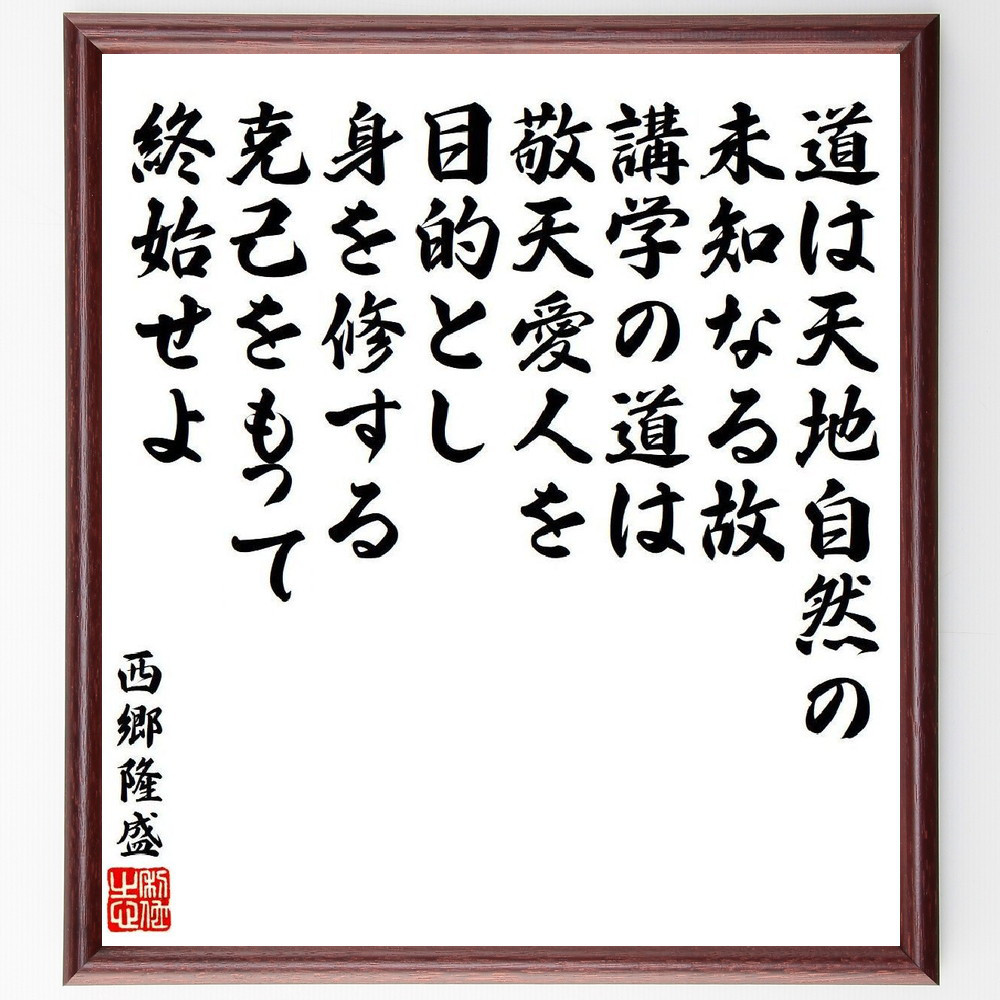 道は天地自然の
未知なる故
講学の道は
敬天愛人を
目的とし
身を修する
克己をもって
終始せよ
西郷隆盛